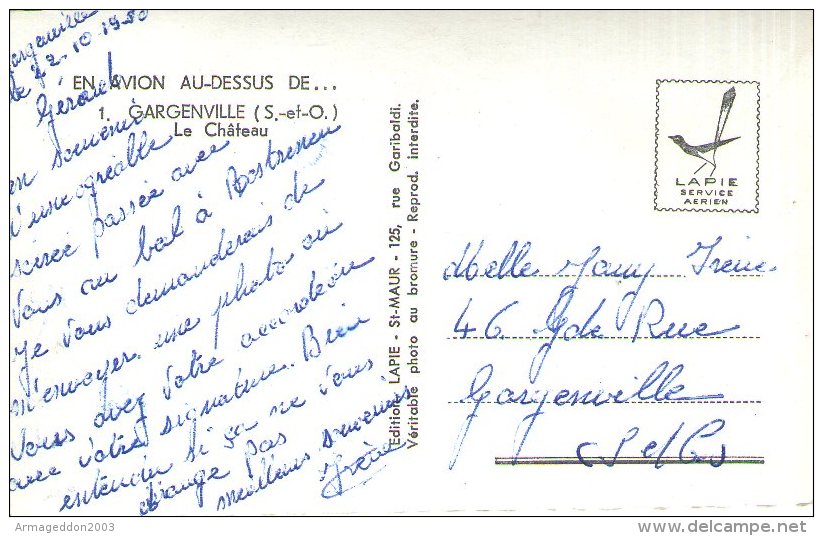 Gargenville
le 22-10-1950
EN AVION AU-DESSUS DE...
1. GARGENVILLE (S.-et-O.)
Le Château
Gérard
en souvenir
d'une agréable
soirée passée avec
vous au bal à Rostrenen
Je vous demanderais de
m'envoyer une photo où
vous avez votre accordéon
avec votre signature. Bien
entendu si ça ne vous
dérange pas
meilleurs souvenirs
Irène
Editions LAPIE - St-MAUR - 125, rue Garibaldi.
Véritable photo au bromure - Reprod. interdite.
LAPIE
SERVICE
AERIEN
Melle Jamy Irène
46 Gde Rue
Gargenville
S et O
Armageddon2003
delcampe.net